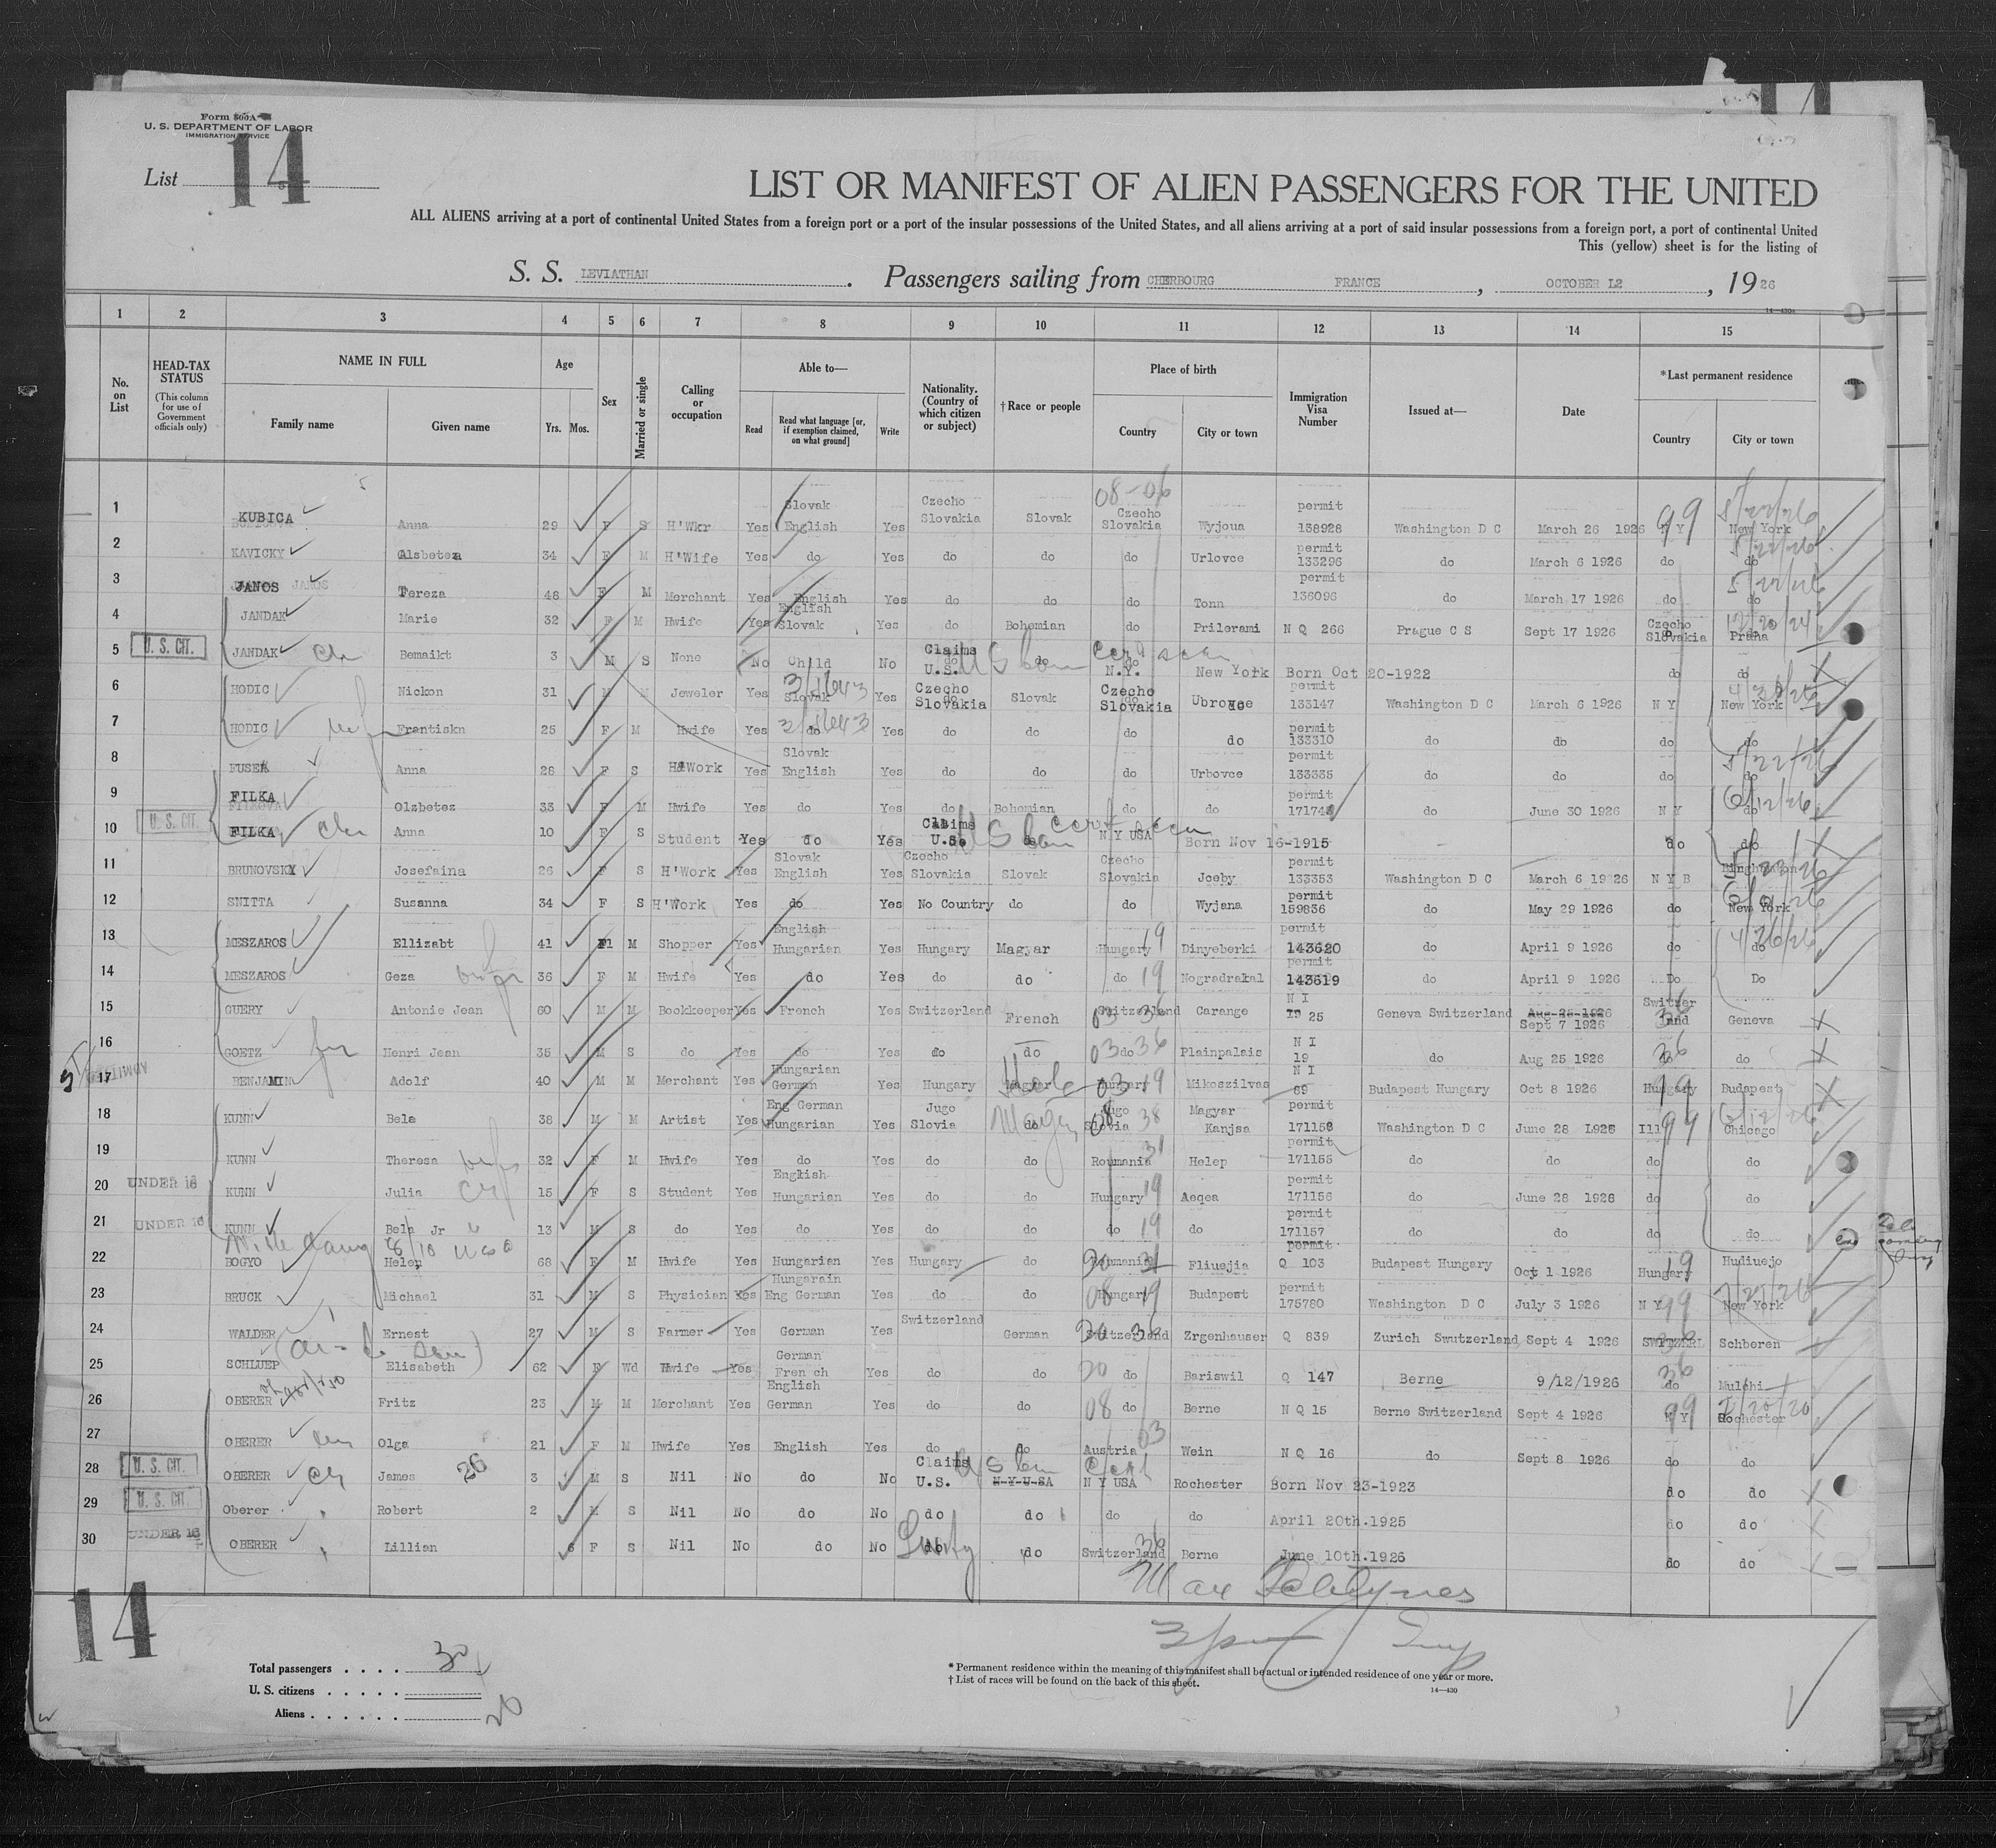 Form 500A
U. S. DEPARTMENT OF LABOR
IMMIGRATION SERVICE
List 14
LIST OR MANIFEST OF ALIEN PASSENGERS FOR THE UNITED
ALL ALIENS arriving at a port of continental United States from a foreign port or a port of the insular possessions of the United States, and all aliens arriving at a port of said insular possessions from a foreign port, a port of continental United
This (yellow) sheet is for the listing of
S. S. LEVIATHAN. Passengers sailing from CHERBOURG FRANCE, OCTOBER L2, 1926
14—430a
1 2 3 4 5 6 7 8 9 10 11 12 13 14 15
No. on List
HEAD-TAX STATUS (This column for use of Government officials only)
NAME IN FULL
Family name
Given name
Age
Yrs. Mos.
Sex
Married or single
Calling or occupation
Able to—
Read
Read what language [or, if exemption claimed, on what ground]
Write
Nationality. (Country of which citizen or subject)
†Race or people
Place of birth
Country
City or town
Immigration Visa Number
Issued at—
Date
*Last permanent residence
Country
City or town
1 KUBICA Anna 29 F S H'Wkr Yes Slovak English Yes Czecho Slovakia Slovak 08-06 Czecho Slovakia Wyjoua permit 138928 Washington D C March 26 1926 N Y 99 New York 5/22/26
2 KAVICKY Alsbetea 34 F M H'Wife Yes do Yes do do do Urlovce permit 133296 do March 6 1926 do do 5/22/26
3 JANOS Tereza 48 F M Merchant Yes English Yes do do do Tonn permit 136096 do March 17 1926 do do 5/22/26
4 JANDAK Marie 32 F M Hwife Yes English Slovak Yes do Bohemian do Prilerami N Q 266 Prague C S Sept 17 1926 Czecho Slovakia Praha 12/20/24
5 U. S. CIT. JANDAK Bemaikt 3 M S None No Child No Claims U.S. US born do N.Y. New York Born Oct 20-1922 do do
6 HODIC Nickon 31 M M Jeweler Yes Slovak Yes Czecho Slovakia Slovak Czecho Slovakia Ubrovce permit 133147 Washington D C March 6 1926 N Y New York
7 HODIC Frantiskn 25 F M Hwife Yes do Yes do do do do permit 133310 do do do do
8 FUSEK Anna 28 F S H'Work Yes Slovak English Yes do do do Urbovce permit 133335 do do do do 5/22/26
9 FILKA Olzbetez 33 F M Hwife Yes do Yes do Bohemian do do permit 171744 do June 30 1926 N Y do 6/12/26
10 U. S. CIT. FILKA Anna 10 F S Student Yes do Yes Claims U.S. US born do N Y USA Born Nov 16-1915 do do
11 BRUNOVSKY Josefaina 26 F S H'Work Yes Slovak English Yes Czecho Slovakia Slovak Czecho Slovakia Jceby permit 133353 Washington D C March 6 1926 N Y B Binghamton
12 SNITTA Susanna 34 F S H'Work Yes do Yes No Country do do Wyjana permit 159836 do May 29 1926 do New York
13 MESZAROS Ellizabt 41 M Shopper Yes English Hungarian Yes Hungary Magyar Hungary 19 Dinyeberki permit 143620 do April 9 1926 do do 4/26/26
14 MESZAROS Geza 36 F M Hwife Yes do Yes do do do 19 Nogradrakal permit 143619 do April 9 1926 Do Do
15 GUERY Antonie Jean 60 M M Bookkeeper Yes French Yes Switzerland French Switzerland 03 36 Carange N I 25 Geneva Switzerland Aug 25 1926 Sept 7 1926 Switzerland 36 Geneva
16 GOETZ Henri Jean 35 M S do Yes do Yes do do 03 do 36 Plainpalais N I 19 do Aug 25 1926 do 36 do
ADMITTED
17 BENJAMIN Adolf 40 M M Merchant Yes Hungarian German Yes Hungary Magyar Hungary 19 Mikoszilvas N I 69 Budapest Hungary Oct 8 1926 Hungary 19 Budapest
18 KUNN Bela 38 M M Artist Yes Eng German Hungarian Yes Jugo Slovia do Jugo Slovia 38 Magyar Kanjsa permit 171158 Washington D C June 28 L926 Ill 99 Chicago
19 KUNN Theresa 32 F M Hwife Yes do Yes do do Roumania 31 Helep permit 171155 do do do do
20 UNDER 16 KUNN Julia 15 F S Student Yes English Hungarian Yes do do Hungary 19 Aeqea permit 171156 do June 28 1926 do do
21 UNDER 16 KUNN Bela Jr 13 M S do Yes do Yes do do do 19 do permit 171157 do do do do
22 BOGYO Helen 68 F M Hwife Yes Hungarian Yes Hungary do Roumania 31 Fliuejia permit Q 103 Budapest Hungary Oct 1 1926 Hungary 19 Hudiuejo
23 BRUCK Michael 31 M S Physician Yes Hungarain Eng German Yes do do 08 Hungary 19 Budapest permit 175780 Washington D C July 3 1926 N Y 99 New York
24 WALDER Ernest 27 M S Farmer Yes German Yes Switzerland German Switzerland 36 Zrgenhauser Q 839 Zurich Swutzerland Sept 4 1926 SWITZERL Schberen
25 SCHLUEP Elisabeth 62 F Wd Hwife Yes German Fren ch Yes do do 20 do Bariswil Q 147 Berne 9/12/1926 do 36 Mulchi
26 OBERER Fritz 23 M M Merchant Yes English German Yes do do 08 do Berne N Q 15 Berne Switzerland Sept 4 1926 N Y 99 Rochester
27 OBERER Olga 21 F M Hwife Yes English Yes do do Austria 03 Wein N Q 16 do Sept 8 1926 do do
28 U. S. CIT. OBERER James 26 3 M S Nil No do No Claims U.S. US born N Y U SA N Y USA Rochester Born Nov 23-1923 do do
29 U. S. CIT. Oberer Robert 2 M S Nil No do No do do do do April 20th.1925 do do
30 UNDER 16 OBERER Lillian 6 F S Nil No do No do do Switzerland 36 Berne June 10th.1926 do do
14
Total passengers . . . . 30
U. S. citizens . . . . .
Aliens . . . . . .
* Permanent residence within the meaning of this manifest shall be actual or intended residence of one year or more.
† List of races will be found on the back of this sheet.
14—430